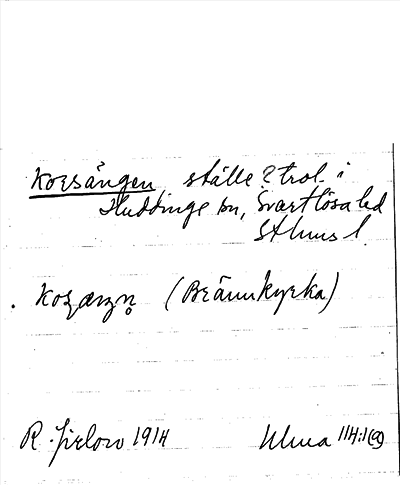 Korsängen, ställe? trol. i
Huddinge sn, Svartlösa hd
Sthlms l.
(Brännkyrka)
R. Jirlow 1914 Ulma 114:1(a)